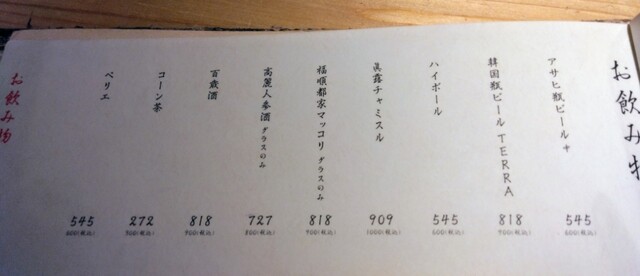 お飲み物
アサヒ瓶ビール小
545
600(税込)
韓国瓶ビール TERRA
818
900(税込)
ハイボール
545
600(税込)
眞露チャミスル
909
1000(税込)
福順都家マッコリ グラスのみ
818
900(税込)
高麗人参酒 グラスのみ
727
800(税込)
百歳酒
818
900(税込)
コーン茶
272
300(税込)
ペリエ
545
600(税込)
お飲み物